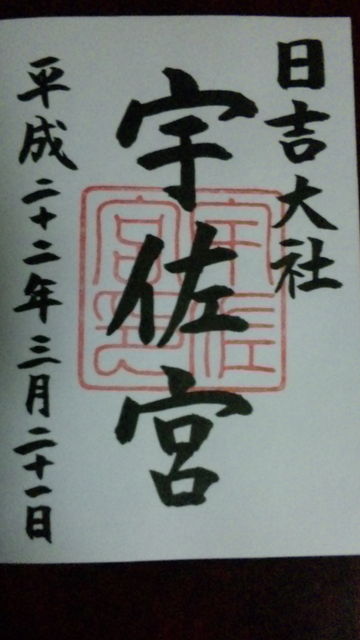 日吉大社
宇佐宮
宇佐
宮璽
平成二十二年三月二十一日